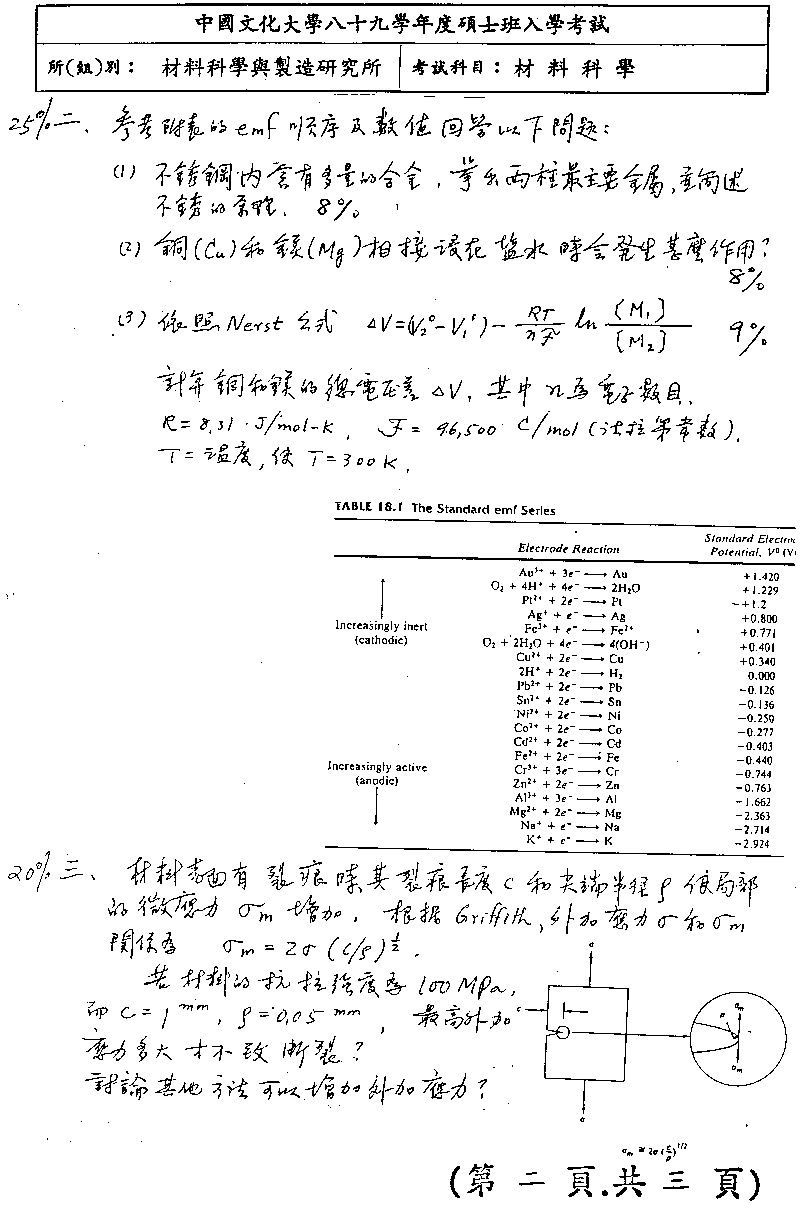 中國文化大學八十九學年度碩士班入學考試
所(組)別： 材料科學與製造研究所 考試科目：材料科學
25% 二、參考附表的emf順序及數值回答以下問題：
(1) 不銹鋼內含有多量的合金，舉出兩種最主要金屬，並簡述
不銹的原理. 8%
(2) 銅(Cu)和鎂(Mg)相接浸在塩水時會發生甚麼作用？
8%
(3) 依照Nerst公式 ΔV=(V₂⁰-V₁⁰)- RT/nF ln [M₁]/[M₂] 9%
計算銅和鎂的總電位差ΔV, 其中n為電子數目,
R=8.31 J/mol-K, F=96,500 C/mol (法拉第常數).
T=溫度, 使T=300K.
TABLE 18.1 The Standard emf Series
Electrode Reaction
Standard Electrode
Potential, V⁰ (V)
Au³⁺ + 3e⁻ ⟶ Au +1.420
O₂ + 4H⁺ + 4e⁻ ⟶ 2H₂O +1.229
Pt²⁺ + 2e⁻ ⟶ Pt ~+1.2
Ag⁺ + e⁻ ⟶ Ag +0.800
Increasingly inert
(cathodic)
Fe³⁺ + e⁻ ⟶ Fe²⁺ +0.771
O₂ + 2H₂O + 4e⁻ ⟶ 4(OH⁻) +0.401
Cu²⁺ + 2e⁻ ⟶ Cu +0.340
2H⁺ + 2e⁻ ⟶ H₂ 0.000
Pb²⁺ + 2e⁻ ⟶ Pb -0.126
Sn²⁺ + 2e⁻ ⟶ Sn -0.136
Ni²⁺ + 2e⁻ ⟶ Ni -0.250
Co²⁺ + 2e⁻ ⟶ Co -0.277
Cd²⁺ + 2e⁻ ⟶ Cd -0.403
Fe²⁺ + 2e⁻ ⟶ Fe -0.440
Increasingly active
(anodic)
Cr³⁺ + 3e⁻ ⟶ Cr -0.744
Zn²⁺ + 2e⁻ ⟶ Zn -0.763
Al³⁺ + 3e⁻ ⟶ Al -1.662
Mg²⁺ + 2e⁻ ⟶ Mg -2.363
Na⁺ + e⁻ ⟶ Na -2.714
K⁺ + e⁻ ⟶ K -2.924
20% 三、材料表面有裂痕時其裂痕長度c和尖端半徑ρ使局部
的微應力σm增加, 根据Griffith, 外加應力σ和σm
關係為 σm = 2σ (c/ρ)^½.
若材料的抗拉強度為100 MPa,
而c=1 mm, ρ=0.05 mm, 最高外加
應力多大才不致斷裂？
討論其他方法可以增加外加應力？
σ
c
ρ
σm
σm
σ
σm ≅ 2σ(c/ρ)^1/2
(第二頁.共三頁)